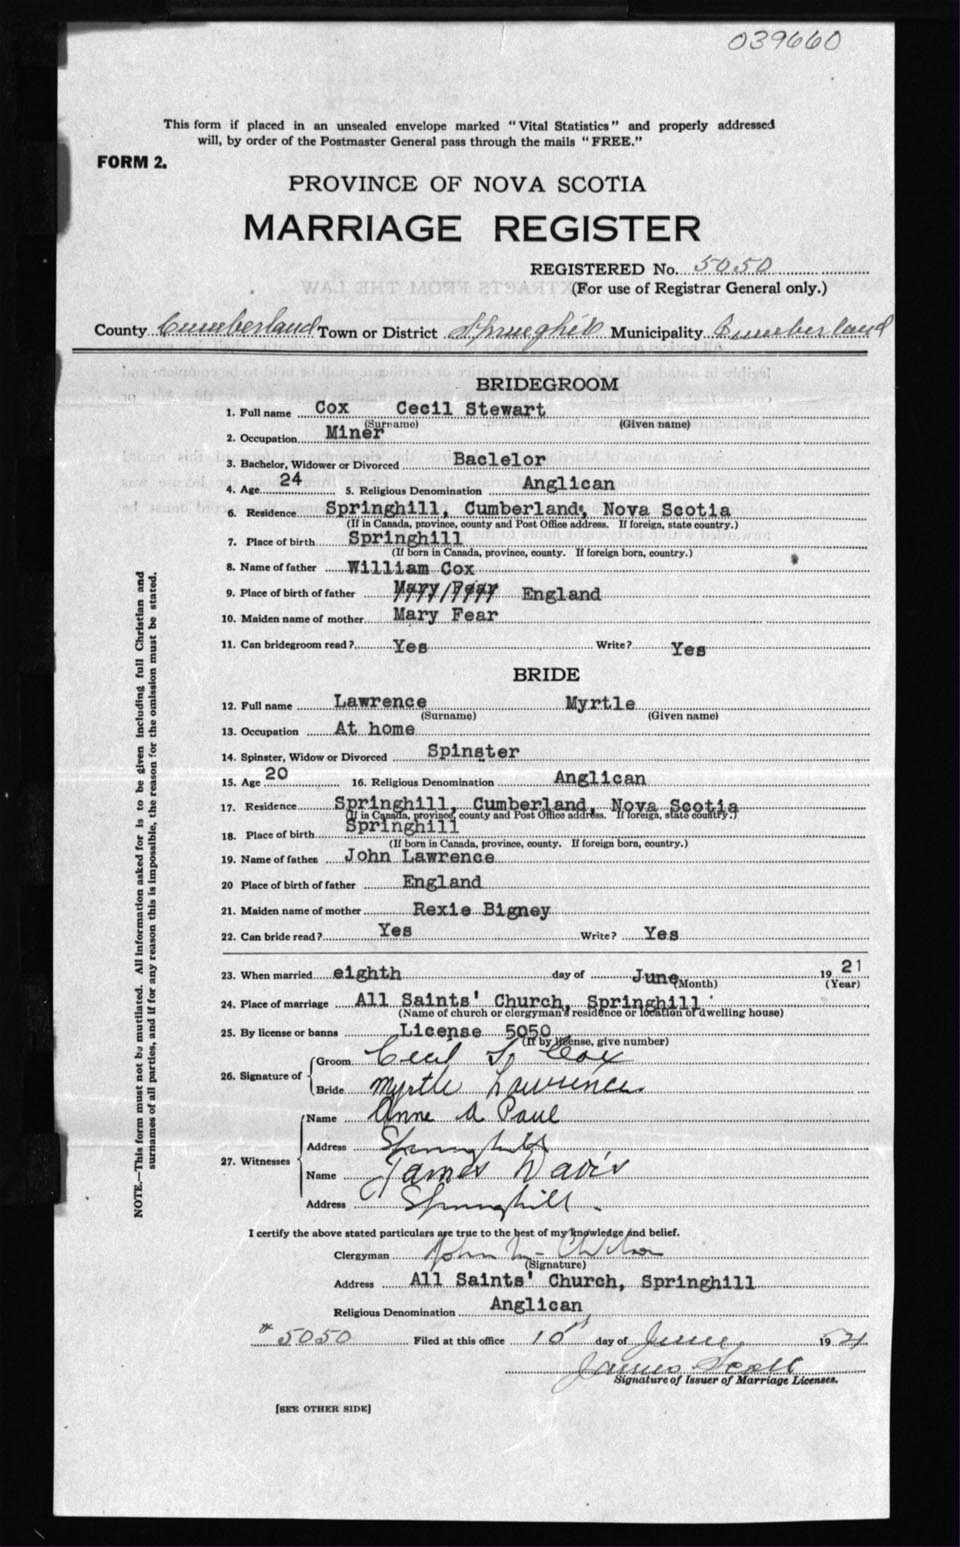 039660
This form if placed in an unsealed envelope marked "Vital Statistics" and properly addressed
will, by order of the Postmaster General pass through the mails "FREE."
FORM 2.
PROVINCE OF NOVA SCOTIA
MARRIAGE REGISTER
REGISTERED No. 5050
(For use of Registrar General only.)
County Cumberland Town or District Springhill Municipality Cumberland
BRIDEGROOM
1. Full name Cox Cecil Stewart
(Surname) (Given name)
2. Occupation Miner
3. Bachelor, Widower or Divorced Baclelor
4. Age 24 5. Religious Denomination Anglican
6. Residence Springhill, Cumberland, Nova Scotia
(If in Canada, province, county and Post Office address. If foreign, state country.)
7. Place of birth Springhill
(If born in Canada, province, county. If foreign born, country.)
8. Name of father William Cox
9. Place of birth of father Mary Fear England
10. Maiden name of mother Mary Fear
11. Can bridegroom read? Yes Write? Yes
BRIDE
12. Full name Lawrence Myrtle
(Surname) (Given name)
13. Occupation At home
14. Spinster, Widow or Divorced Spinster
15. Age 20 16. Religious Denomination Anglican
17. Residence Springhill, Cumberland, Nova Scotia
(If in Canada, province, county and Post Office address. If foreign, state country.)
18. Place of birth Springhill
(If born in Canada, province, county. If foreign born, country.)
19. Name of father John Lawrence
20 Place of birth of father England
21. Maiden name of mother Rexie Bigney
22. Can bride read? Yes Write? Yes
23. When married eighth day of June 1921
(Month) (Year)
24. Place of marriage All Saints' Church, Springhill
(Name of church or clergyman's residence or location of dwelling house)
25. By license or banns License 5050
(If by license, give number)
26. Signature of Groom Cecil S Cox
Bride Myrtle Lawrence
27. Witnesses Name Anne A Paul
Address Springhill
Name James Davis
Address Springhill.
I certify the above stated particulars are true to the best of my knowledge and belief.
Clergyman John
(Signature)
Address All Saints' Church, Springhill
Religious Denomination Anglican
# 5050 Filed at this office day of June 1921
James Scott
Signature of Issuer of Marriage Licenses.
[SEE OTHER SIDE]
NOTE.—This form must not be mutilated. All information asked for is to be given including full Christian and
surnames of all parties, and if for any reason this is impossible, the reason for the omission must be stated.